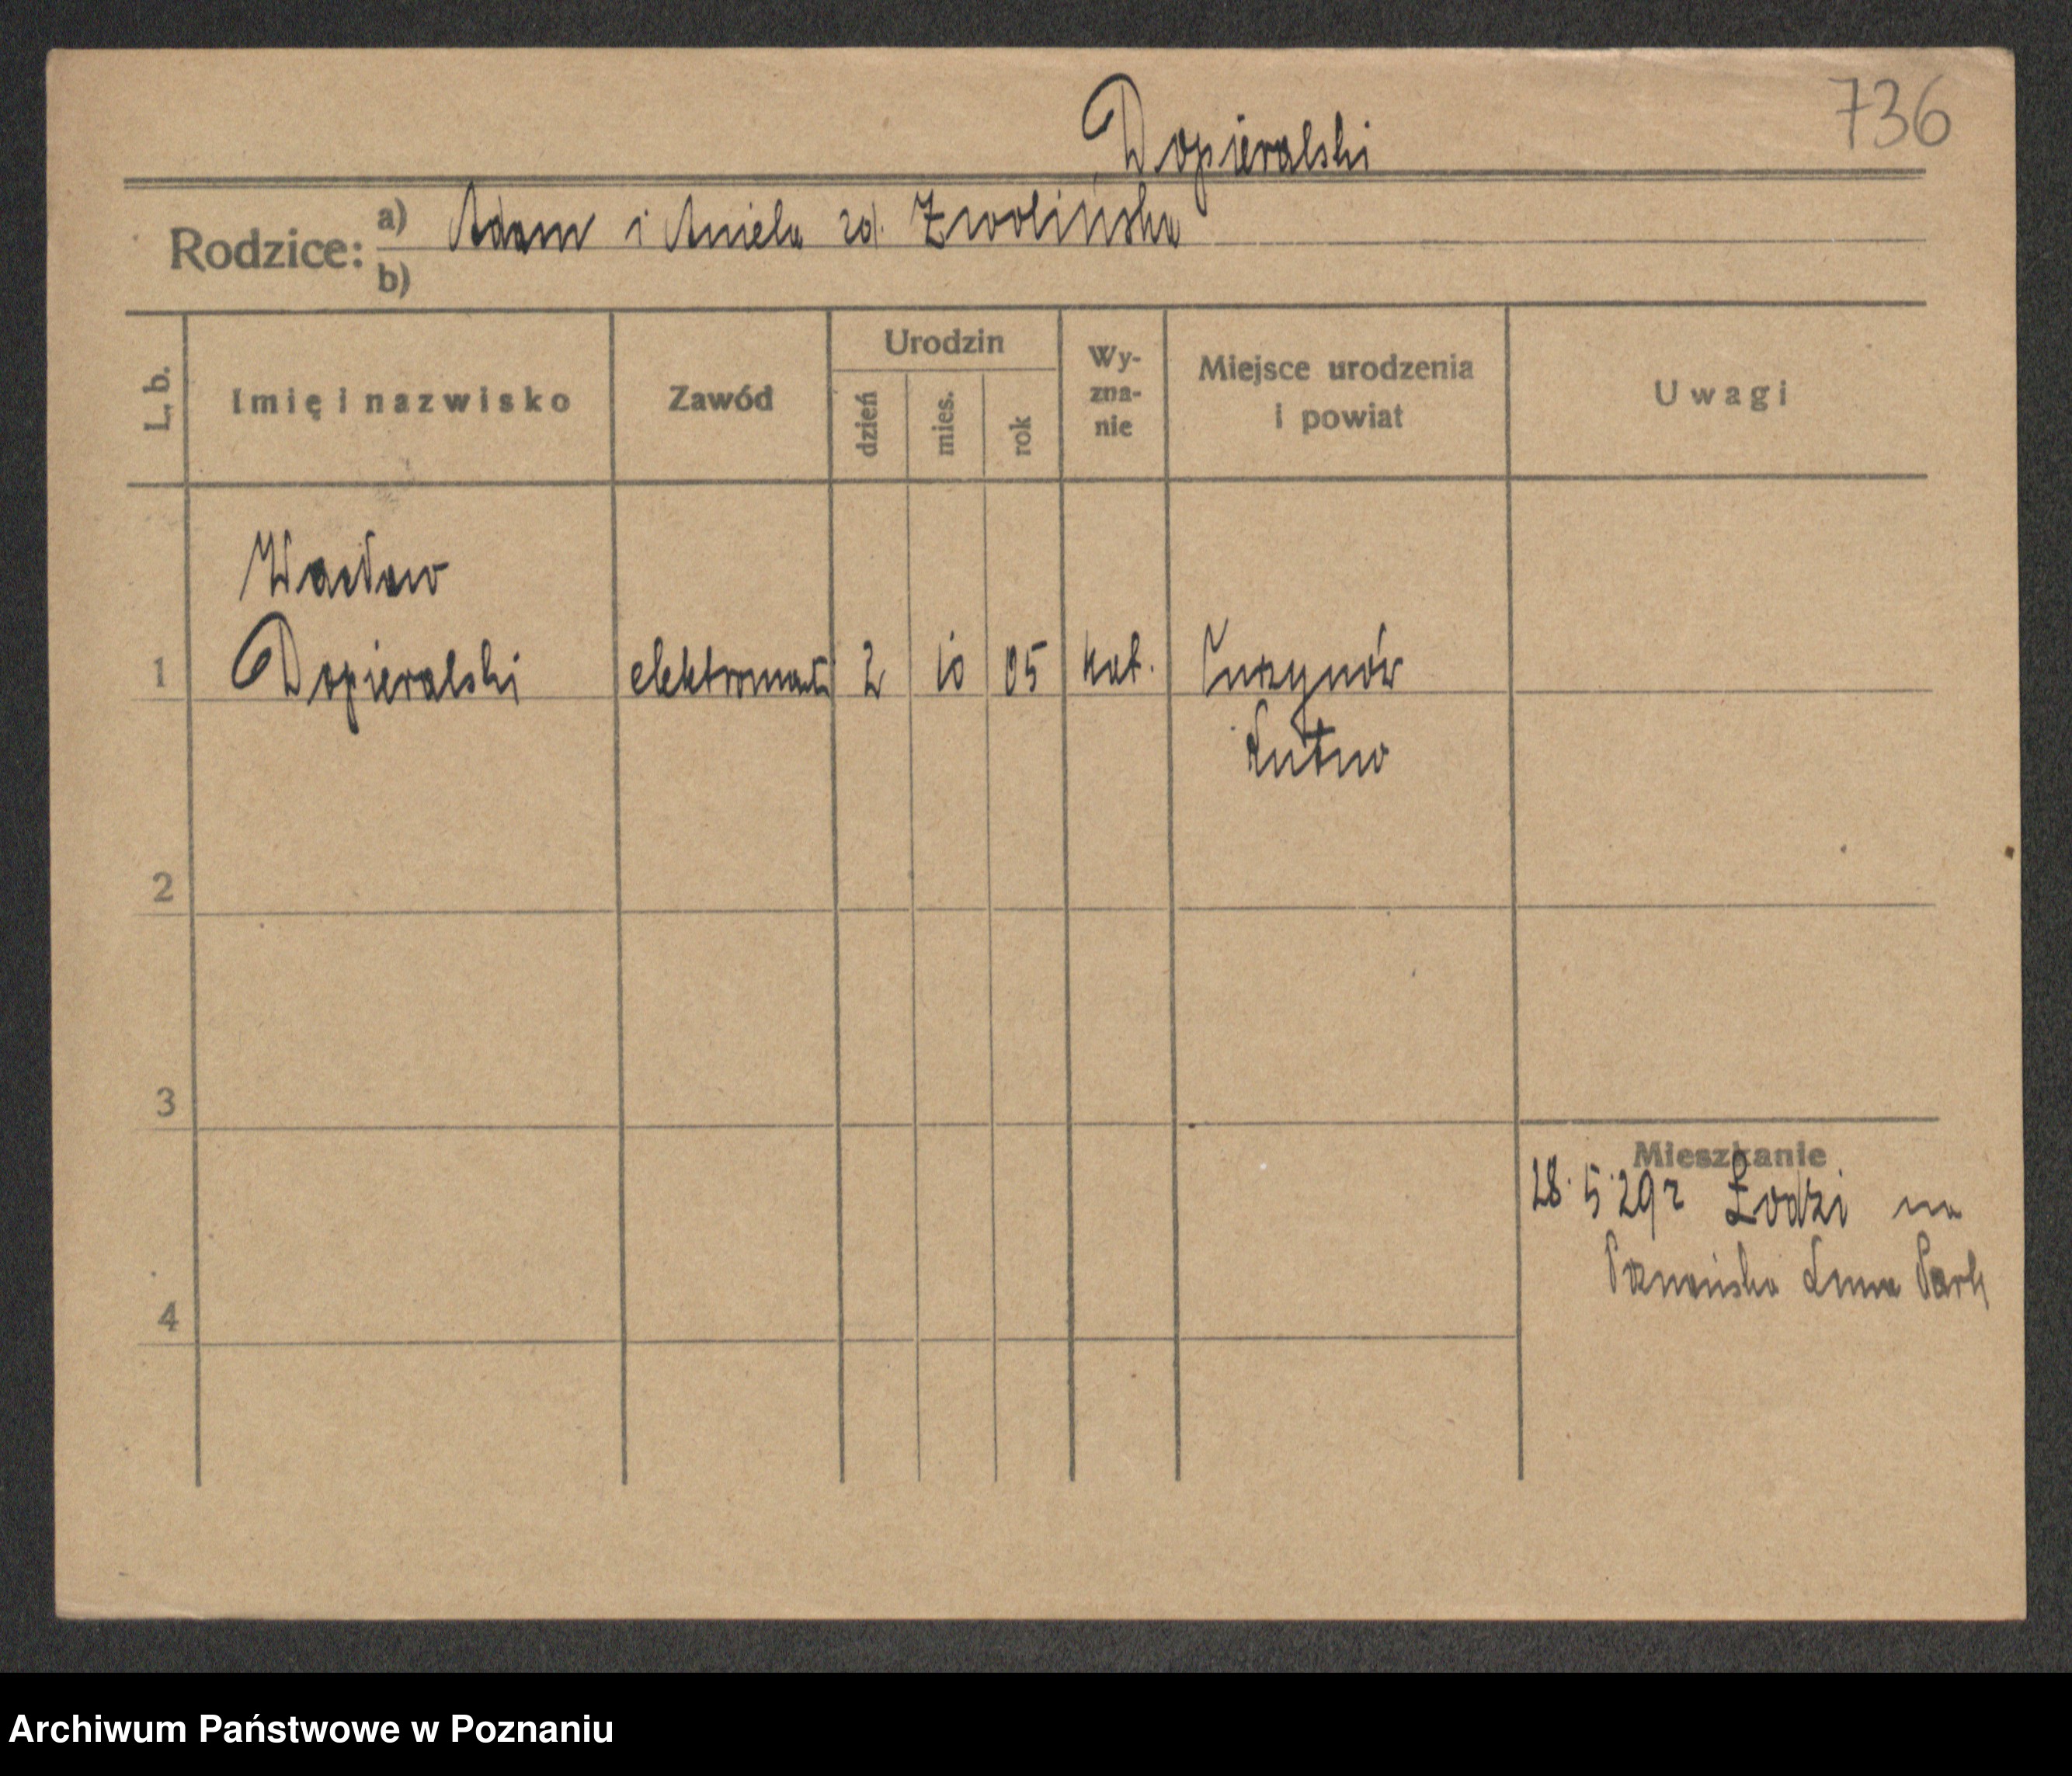 736
Dopieralski
Rodzice: a) Adam i Aniela zd. Zwolińska
b)
L. b.
Imię i nazwisko
Zawód
Urodzin
dzień
mies.
rok
Wy-
zna-
nie
Miejsce urodzenia
i powiat
Uwagi
Wacław
1 Dopieralski elektromont 2 10 05 kat.
Kutno
2
3
4
Mieszkanie
28.5.29 z Łodzi na
Poznańska Luna Park
Archiwum Państwowe w Poznaniu